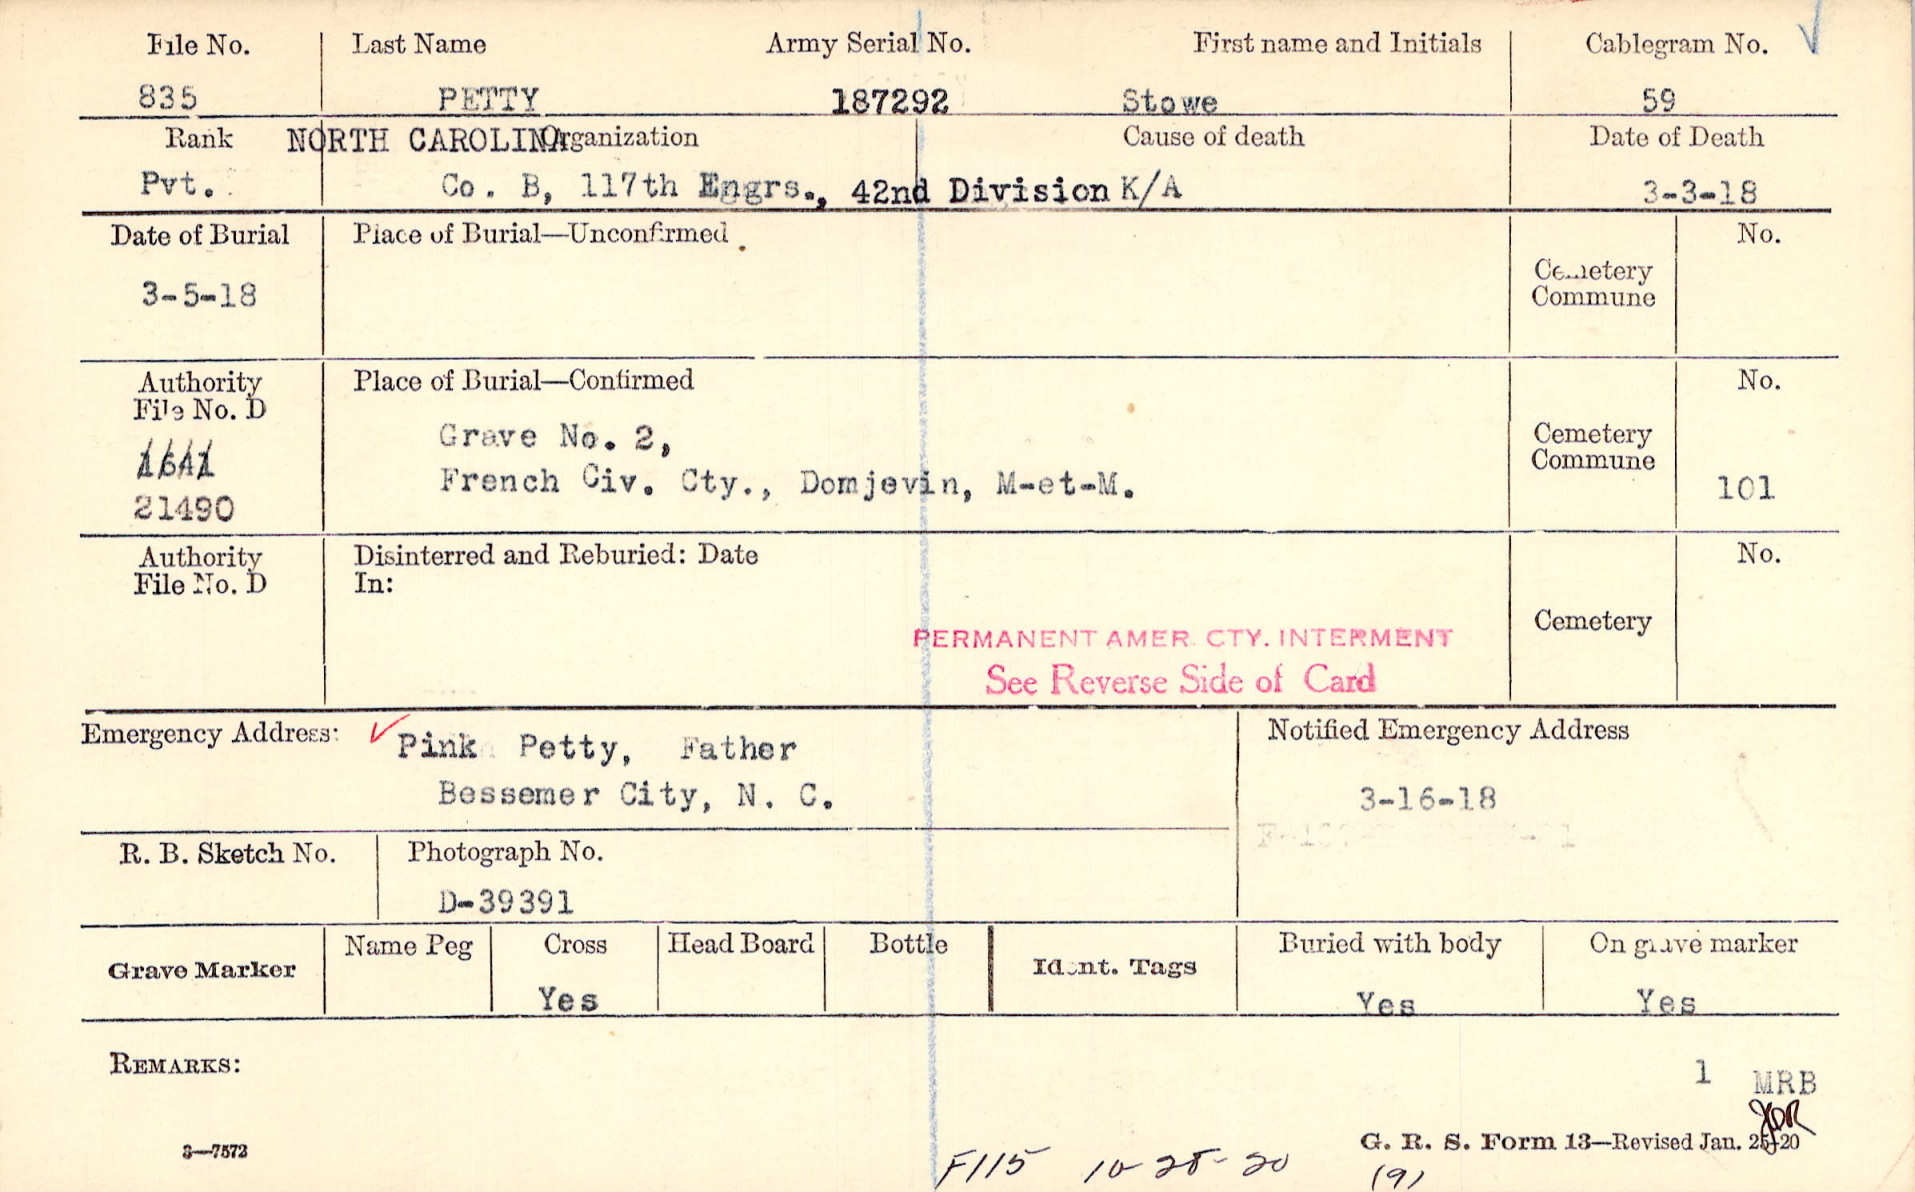 File No. Last Name Army Serial No. First name and Initials Cablegram No.
835 PETTY 187292 Stowe 59
Rank NORTH CAROLINA Organization Cause of death Date of Death
Pvt. Co. B, 117th Engrs., 42nd Division K/A 3-3-18
Date of Burial Place of Burial—Unconfirmed No.
3-5-18 Cemetery
Commune
Authority Place of Burial—Confirmed No.
File No. D
Grave No. 2, Cemetery
1641 French Civ. Cty., Domjevin, M-et-M. Commune 101
21490
Authority Disinterred and Reburied: Date No.
File No. D In:
Cemetery
PERMANENT AMER. CTY. INTERMENT
See Reverse Side of Card
Emergency Address: Pink Petty, Father Notified Emergency Address
Bessemer City, N. C. 3-16-18
R. B. Sketch No. Photograph No.
D-39391
Name Peg Cross Head Board Bottle Buried with body On grave marker
Grave Marker Ident. Tags
Yes Yes Yes
REMARKS:
1 MRB
3—7572 G. R. S. Form 13—Revised Jan. 25-20
F115 10-28-20 (9)